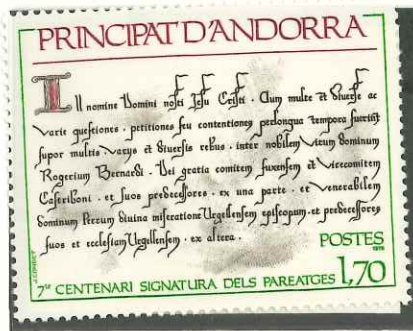 PRINCIPAT D'ANDORRA
In nomine Domini nostri Jesu Cristi. Cum multe et diverse ac
varie questiones. petitiones seu contentiones perlongua tempora fuerint
super multis varys et diversis rebus. inter nobilem virum dominum
Rogerium Bernardi. Dei gratia comitem fuxensem et vicecomitem
Castriboni. et suos predecessores. ex una parte. et venerabilem
dominum Petrum divina miseratione Urgellensem episcopum. et predecessores
suos et ecclesiam Urgellensem. ex altera.
POSTES
1978
7è CENTENARI SIGNATURA DELS PAREATGES 1,70
J.COMBET